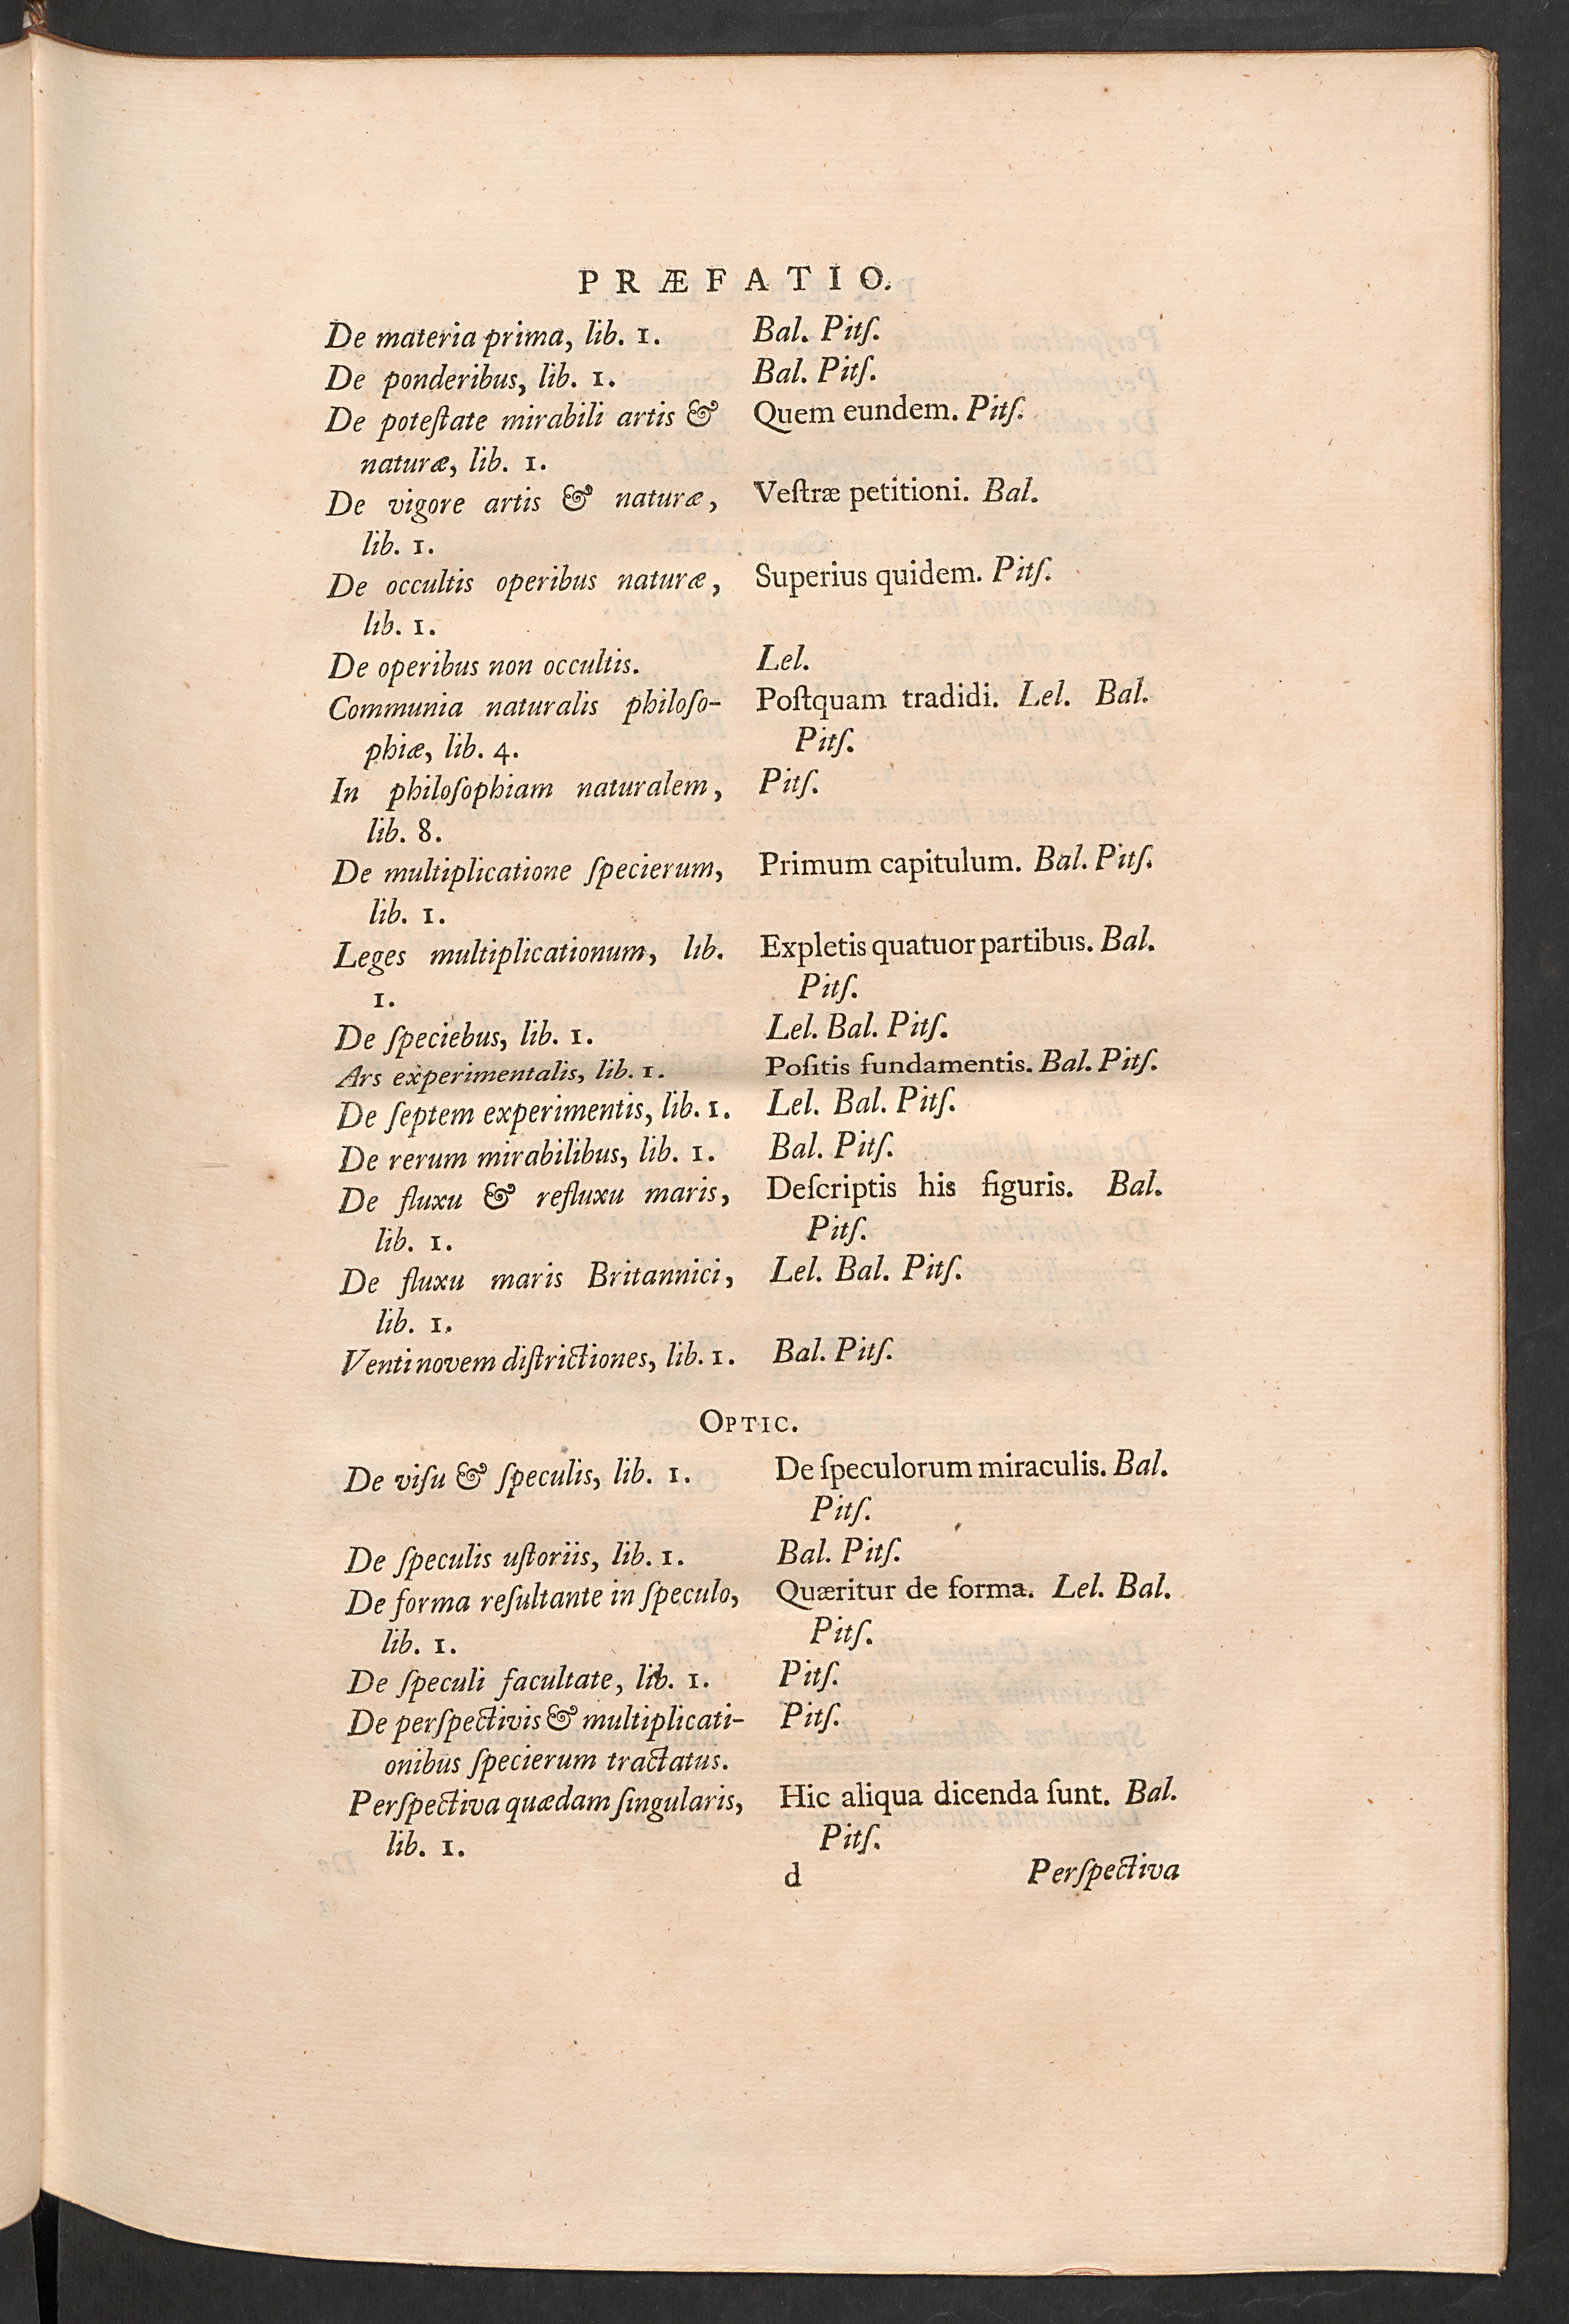 PRÆFATIO.
De materia prima, lib. 1. Bal. Pitſ.
De ponderibus, lib. 1. Bal. Pitſ.
De poteſtate mirabili artis & Quem eundem. Pitſ.
naturæ, lib. 1.
De vigore artis & naturæ, Veſtræ petitioni. Bal.
lib. 1.
De occultis operibus naturæ, Superius quidem. Pitſ.
lib. 1.
De operibus non occultis. Lel.
Communia naturalis philoſo- Poſtquam tradidi. Lel. Bal.
phiæ, lib. 4. Pitſ.
In philoſophiam naturalem, Pitſ.
lib. 8.
De multiplicatione ſpecierum, Primum capitulum. Bal. Pitſ.
lib. 1.
Leges multiplicationum, lib. Expletis quatuor partibus. Bal.
1. Pitſ.
De ſpeciebus, lib. 1. Lel. Bal. Pitſ.
Ars experimentalis, lib. 1. Poſitis fundamentis. Bal. Pitſ.
De ſeptem experimentis, lib. 1. Lel. Bal. Pitſ.
De rerum mirabilibus, lib. 1. Bal. Pitſ.
De fluxu & refluxu maris, Deſcriptis his figuris. Bal.
lib. 1. Pitſ.
De fluxu maris Britannici, Lel. Bal. Pitſ.
lib. 1.
Venti novem diſtrictiones, lib. 1. Bal. Pitſ.
OPTIC.
De viſu & ſpeculis, lib. 1. De ſpeculorum miraculis. Bal.
Pitſ.
De ſpeculis uſtoriis, lib. 1. Bal. Pitſ.
De forma reſultante in ſpeculo, Quæritur de forma. Lel. Bal.
lib. 1. Pitſ.
De ſpeculi facultate, lib. 1. Pitſ.
De perſpectivis & multiplicati- Pitſ.
onibus ſpecierum tractatus.
Perſpectiva quædam ſingularis, Hic aliqua dicenda ſunt. Bal.
lib. 1. Pitſ.
d Perſpectiva